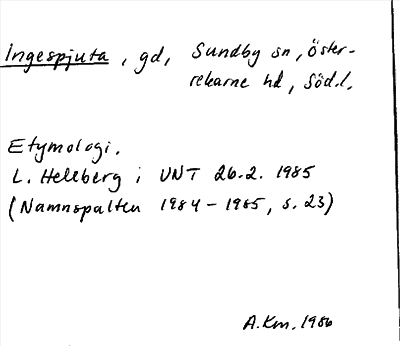 Ingespjuta, gd, Sundby sn, Öster-
rekarne hd, Södl.
Etymologi.
L. Hellberg i UNT 26.2. 1985
(Namnspalten 1984-1985, s. 23)
A.Km. 1986